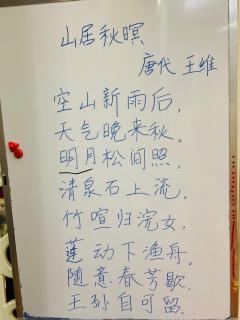 山居秋暝
唐代 王维
空山新雨后，
天气晚来秋。
明月松间照，
清泉石上流。
竹喧归浣女，
莲动下渔舟。
随意春芳歇，
王孙自可留。